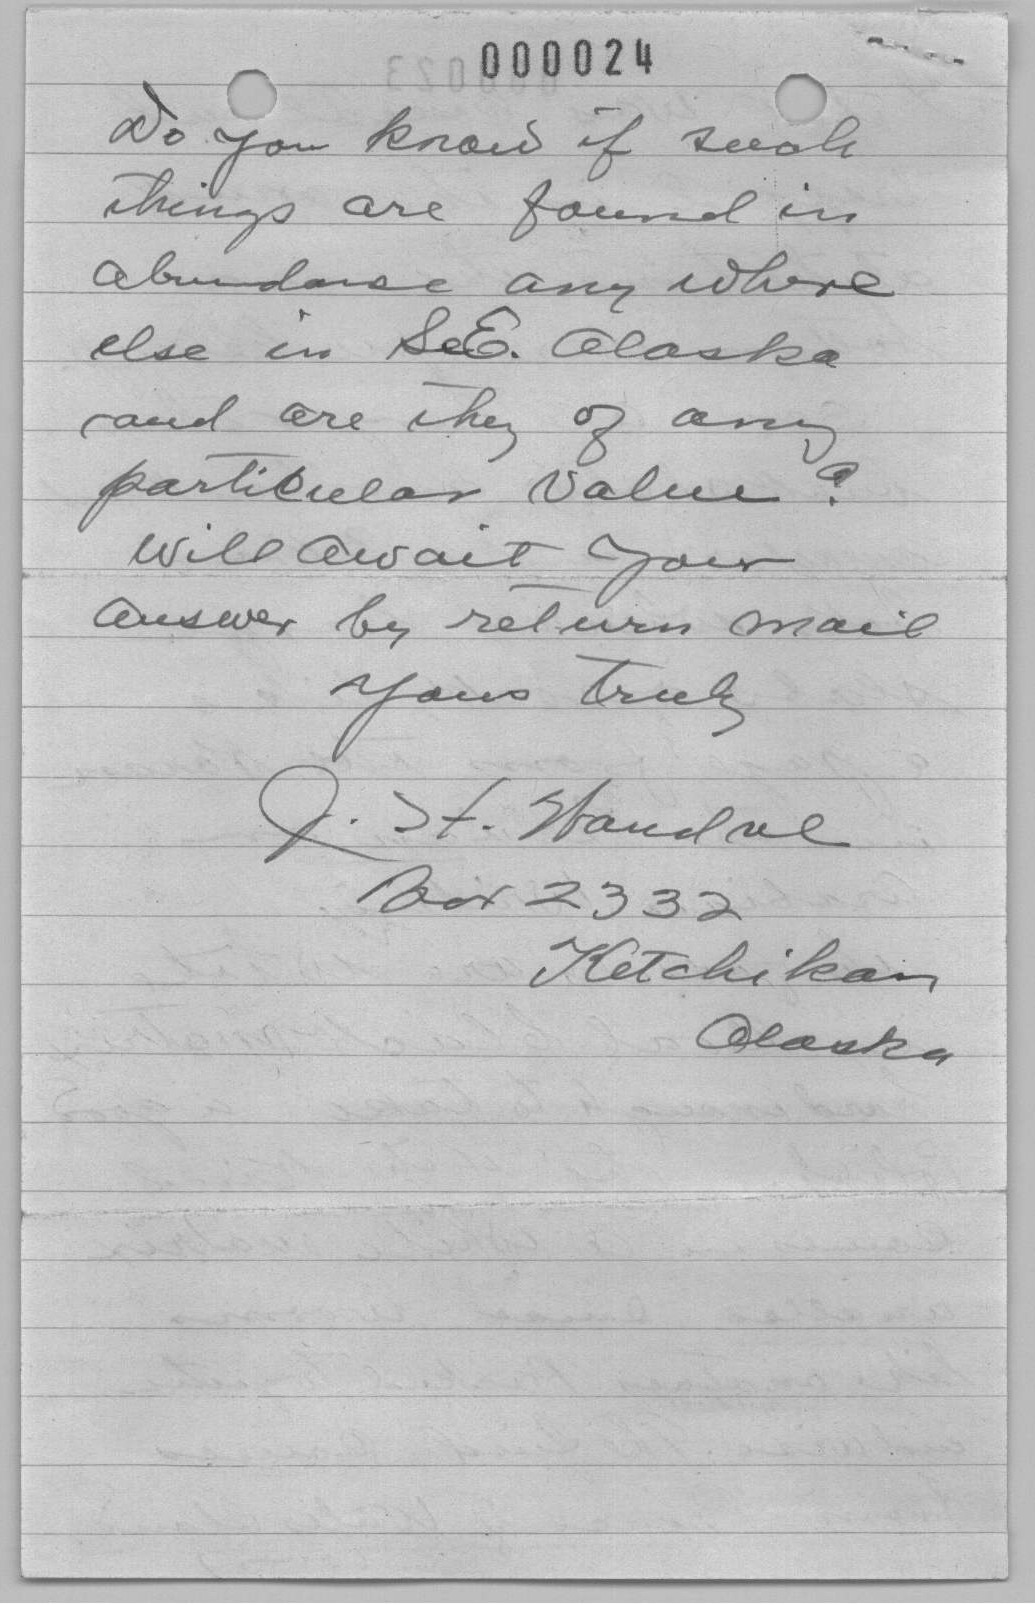 000024
Do you know if such
things are found in
abundance any where
else in S.E. Alaska
and are they of any
particular value?
Will await your
answer by return mail
Yours truly
J. H.
Box 2332
Ketchikan
Alaska